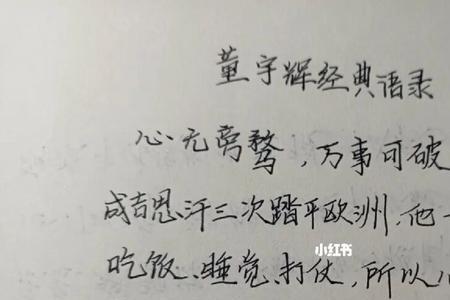 董宇辉经典语录
心无旁骛，万事可破
成吉思汗三次踏平欧洲，他一
小红书
吃饭、睡觉、打仗，所以